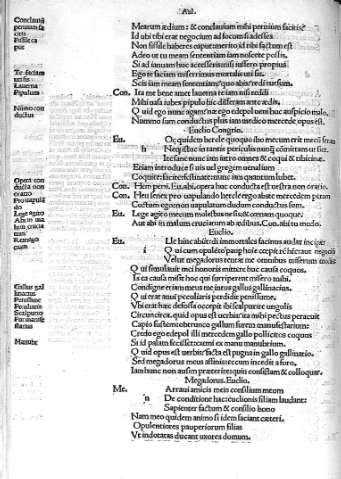 Aul.
Mearum ædium: & conclauium mihi peruium facitis?
Id ubi tibi erat negocium ad focum si adesses
Non fissile haberes caput merito id tibi factum est
Adeo ut tu meam sententiam iam noscere possis
Si ad ianuam huc accesseris nisi iussero propius
Ego te faciam miserrimus mortalis uti sis.
Scis iam meam sententiam? quo abis? redi rursum.
Con. Ita me bene amet lauerna te iam nisi reddi
Mihi uasa iubes pipulo hic differam ante ædis.
Quid ego nunc agam? næ ego edepol ueni huc auspicio malo.
Nummo sum conductus plus iam medico mercede opus est.
Euclio Congrio.
Eu. Oc quidem hercle quoquo ibo mecum erit mecum feram
h Neq istuc in tantis periculis unq committam ut siet.
Ite sane nunc iam intro omnes & coqui & tibicinæ.
Etiam introduce si uis uel gregem uenalium
Coquite: facite: festinate: nunc iam quantum lubet.
Con. Eu. abi, opera huc conducta est uestra non oratio.
Con. Heu senex pro uapulando hercle ego abs te mercedem petam
Coctum ego non uapulatum dudum conductus fum.
Eu. Lege agito mecum molestus ne sis: & coenam quoque.
Aut abi in malum cruciatum ab ædibus. Con. abi tu modo.
Euclio.
Eu. Lle hinc abiit dii immortales facinus audax incipit
i Qui cum opulento pauper
Velut megadorus tentat me omnibus miserum modis
Qui simulauit mei honoris mittere huc causa coquos.
Is ea causa misit hoc qui surriperent misero mihi.
Condigne etiam meus me intus gallus gallinacius
Qui erat anui peculiaris perdidit penissime.
Vbi erat hæc defossa occepit ibi scalpurire ungulis
Circumcirca. quid opus est uerbis ita mihi pectus peracuit
Capio fustem obtrunco gallum furem manufestarium:
Credo ego edepol illi mercedem gallo pollicitos coquos
Si id palam fecisset exemi ex manu manubrium.
Quid opus est uerbis facta est pugna in gallo gallinatio.
Sed megadorus meus affinis eccum incedit a foro,
Iam hunc non ausim præterire quin consistam & colloquar.
Megadorus. Euclio.
Me. Arraui amicis meis consilium meum
n De conditione hac: euclionis filiam laudant:
Sapienter factum & consilio bono
Nam meo quidem animo si idem faciant cæteri.
Opulentiores pauperiorum filias
Vt indotatas ducant uxores domum.
Te faciam
Lauerna
Pipulum
Nũmo con
ductus
Lege agito
Gallus gal
linacius
Penissime
Peculiaris
Manubr